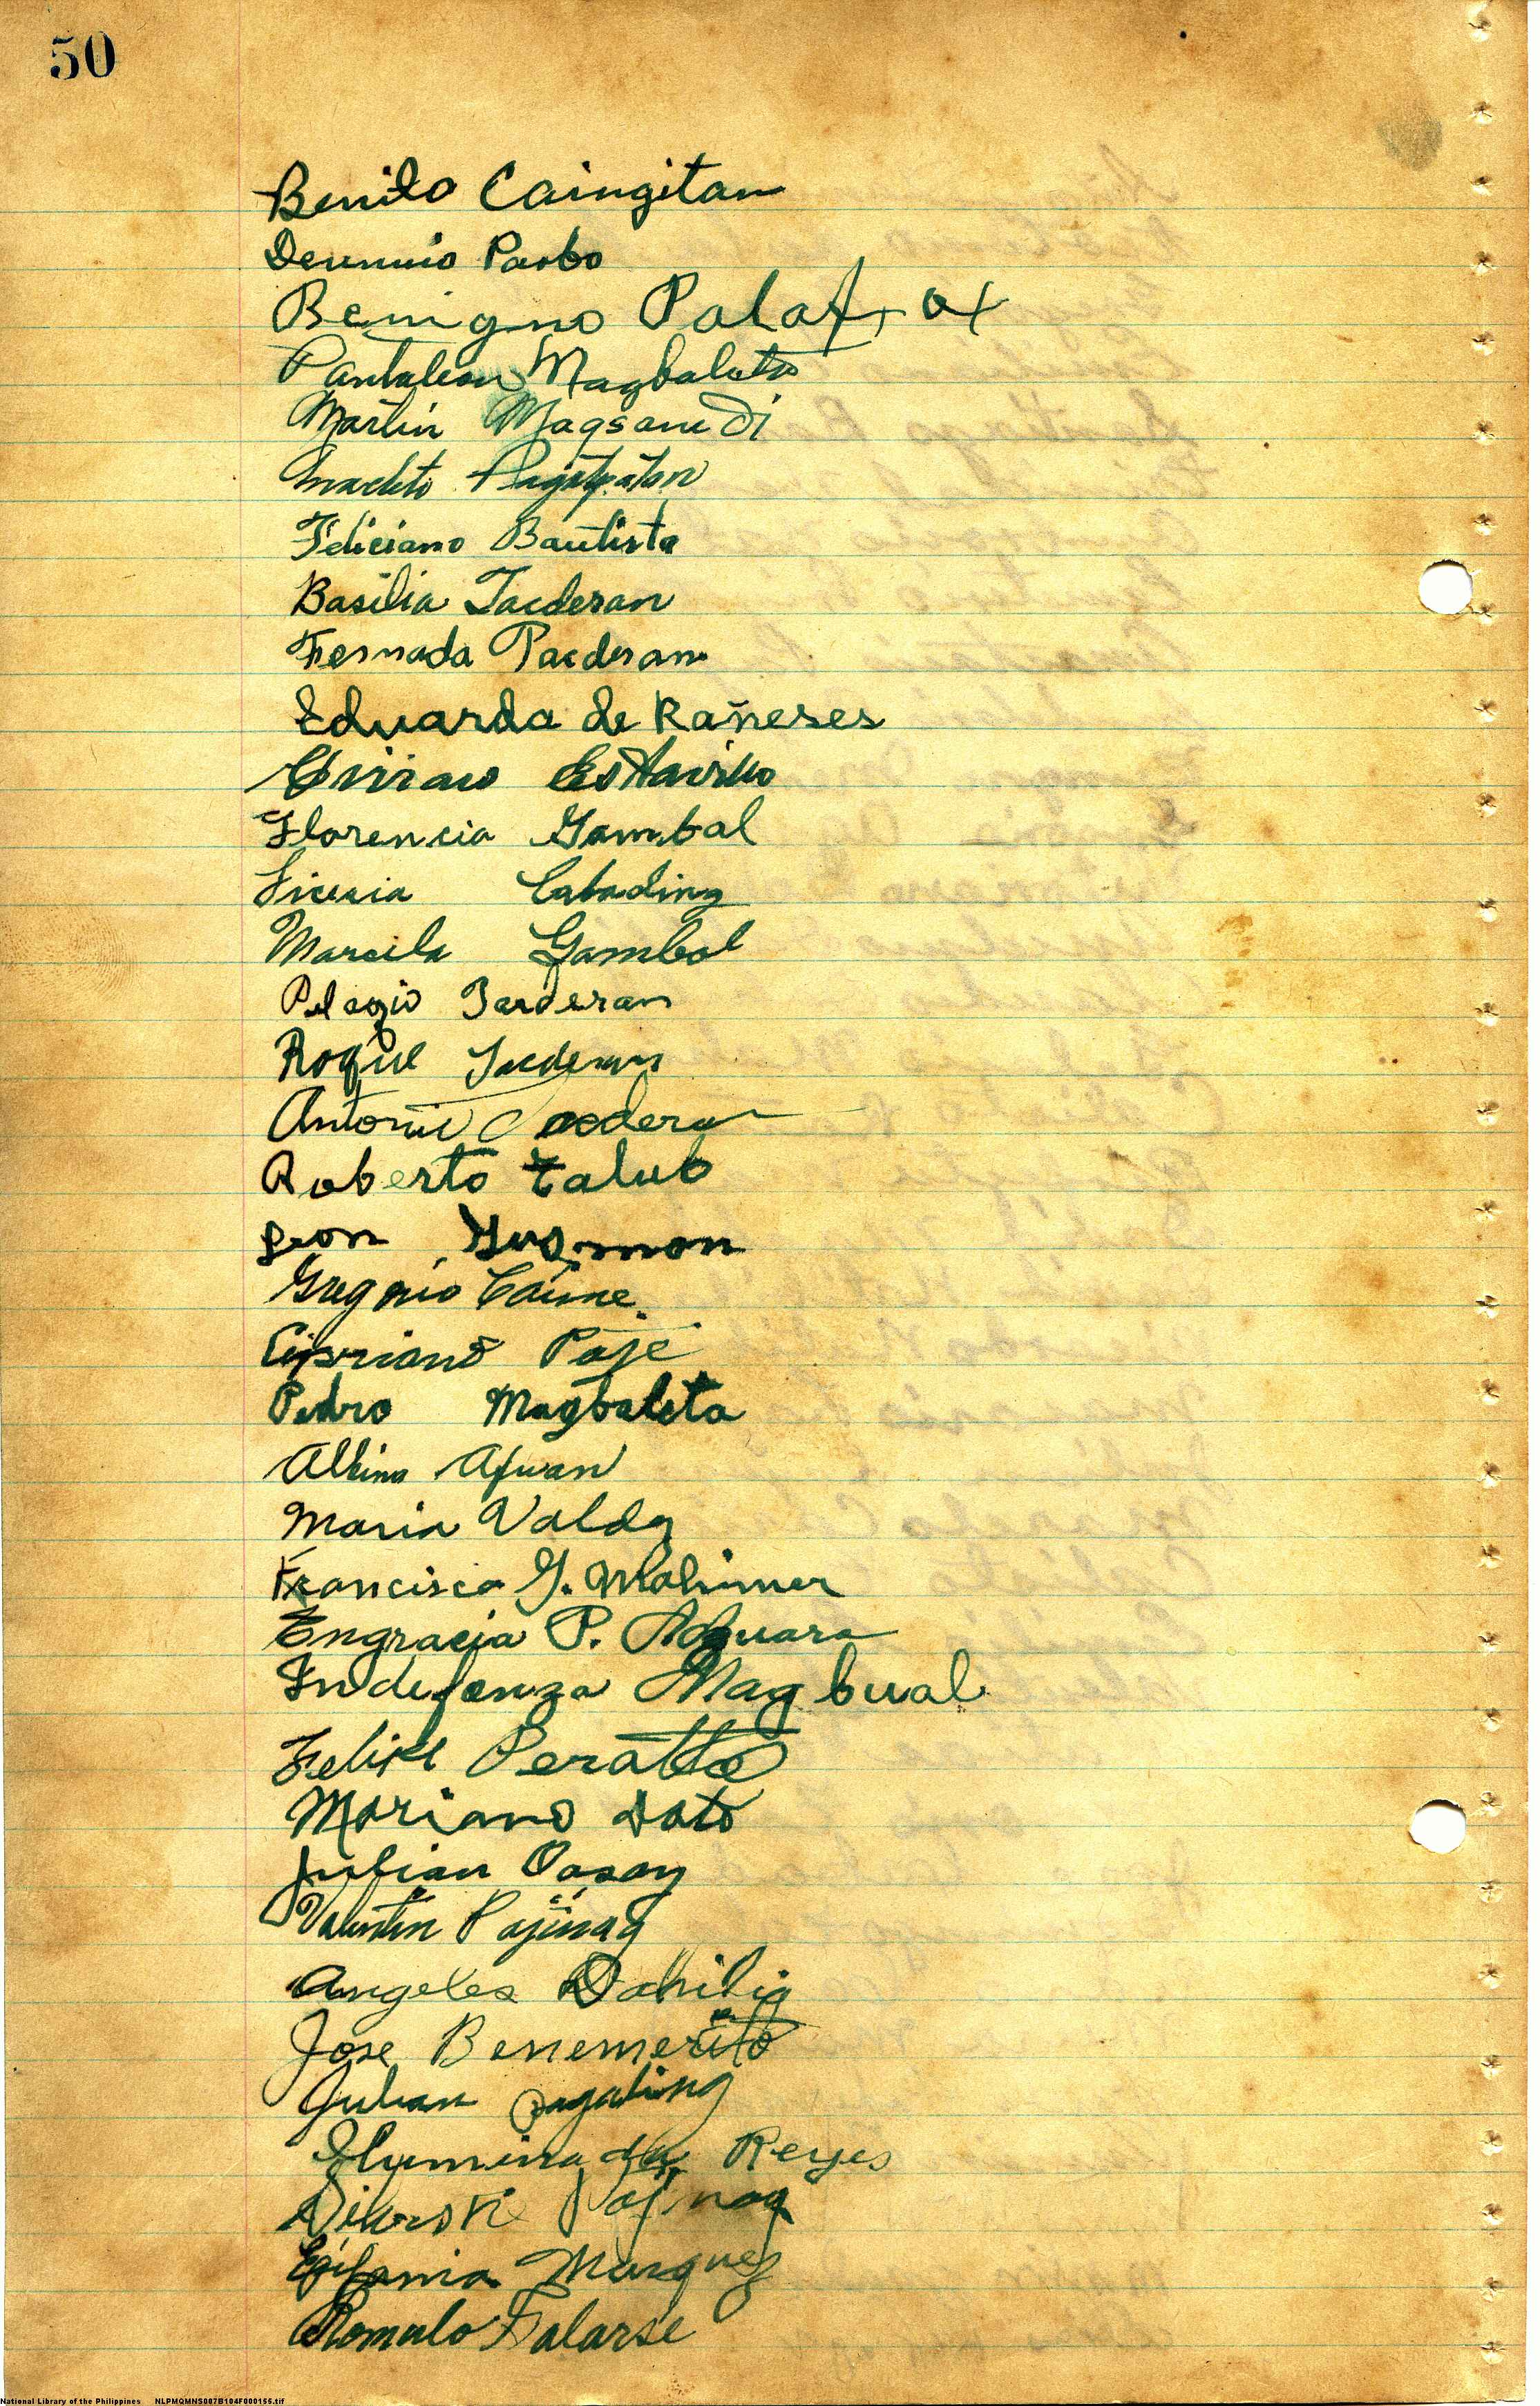 50
Benito Caingitan
Paobo
Benigno Palafox
Pantaleon Magbaleta
Martin Magsanidi
Feliciano Bautista
Basilia Tacderan
Fernada Tacderan
Eduarda de Rañeses
Estavillo
Florencia Gambal
Cabading
Marcela Gambol
Pelagio Tacderan
Roque Tacderan
Antonio Tacderan
Roberto Talub
Leon Gusmon
Gregorio
Cipriano Paje
Pedro Magbaleta
Albina Afuan
Maria Valdez
Francisca G. Molinmer
Engracia P. Adquara
Indefonza Magbual
Felipe Peralta
Mariano Soto
Julian Oasay
Valentin Pajinag
Angeles Dahilig
Jose Benemerito
Julian Pagaling
Iluminada Reyes
Pajinag
Epifania Marquez
Romulo Falarse
National Library of the Philippines NLPMQMNS007B104F000155.tif